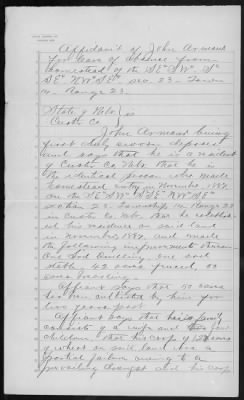 Affidavit of John Armand
for leave of absence from
homestead of the SE¼ SW¼ S½
SE¼ NW¼ SE¼ sec 23 - Town
- Range 23
State of Nebr
Custer Co
John Armand being
first duly sworn deposes
and says that he is a resident
of Custer Co Nebr that he is
the identical person who made
homestead entry in November 188
on the SE SW S SE NW SE
section 23 Township Range 23
in Custer Co Nebr that he establish
ed his residence on said land
in November 188 and made
the following improvements thereon
One sod building, one sod
stable, 42 acres fenced, 50
acres breaking
Affiant says that 50 acres
has been cultivated by him for
two years past
Affiant says that his family
consists of a wife and four
children, that his crop of
of wheat on said land was a
partial failure owing to a
prevailing drought and his crop